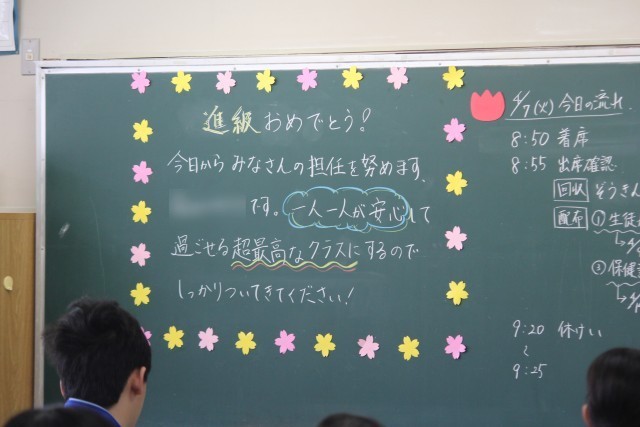 進級おめでとう!
今日からみなさんの担任を努めます、
です。一人一人が安心して
過ごせる超最高なクラスにするので
しっかりついてきてください!
4/7(火)今日の流れ
8:50 着席
8:55 出席確認
回収 ぞうきん
配布 ①生徒
③保健
9:20 休けい
〜
9:25